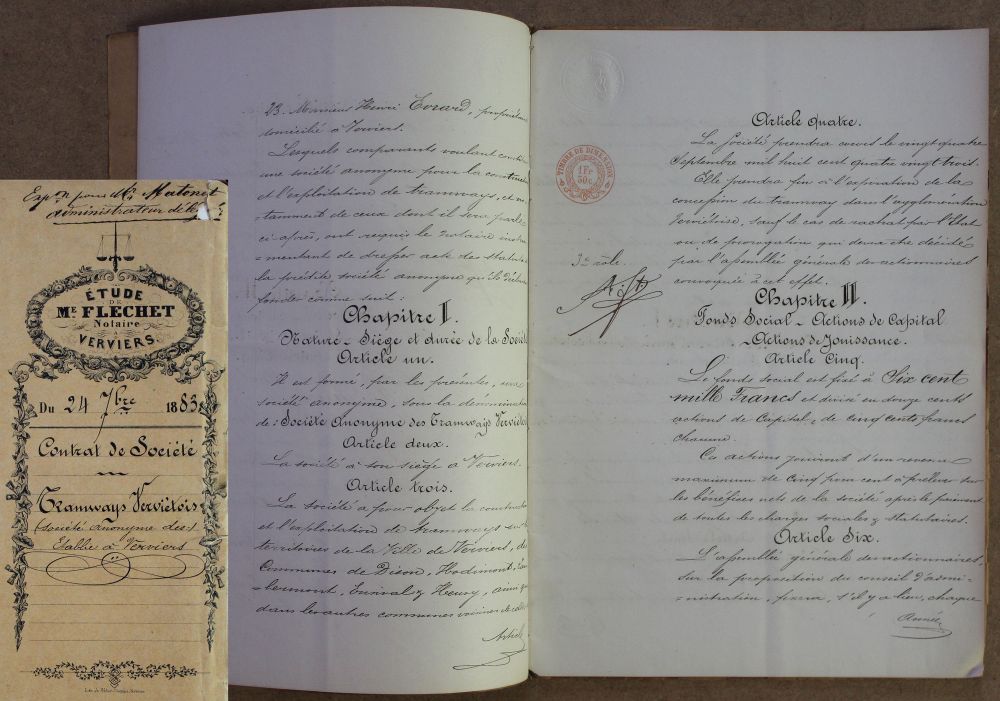 Expon pour Mr Matonet
administrateur délégué
ÉTUDE
DE
ME FLECHET
Notaire
A
VERVIERS.
Du 24 7bre 1883
Contrat de Société
Tramways Verviétois
(Société Anonyme des)
Etablie à Verviers
23. Monsieur Henri Evrard, propriétaire
domicilié à Verviers.
Lesquels comparants voulant constituer
une société anonyme pour la construction
et l'exploitation de tramways, et no-
=tamment de ceux dont il sera parlé
ci-après, ont requis le Notaire instru-
=mentant de dresser acte des statuts de
la prédite société anonyme qu'ils déclarent
fonder comme suit:
Chapitre I.
Nature - Siège et durée de la Société
Article un.
Il est formé, par les présentes, une
société anonyme, sous la dénomination
de: Société Anonyme des Tramways Verviétois
Article deux.
La société a son siège à Verviers.
Article trois.
La société a pour objet la construction
et l'exploitation de Tramways sur les
territoires de la Ville de Verviers, des
Communes de Dison, Hodimont, Lam-
bermont, Ensival & Heusy, ainsi que
dans les autres communes voisines de celles-ci
Article
TIMBRE DE DIMENSION
1 Fr
50 c
3e rôle
Article Quatre.
La Société prendra cours le vingt quatre
Septembre mil huit cent quatre vingt trois.
Elle prendra fin à l'expiration de la
concession du tramway dans l'agglomération
Verviétoise, sauf le cas de rachat par l'Etat
ou de prorogation qui devra être décidée
par l'assemblée générale des actionnaires
convoquée à cet effet.
Chapitre II.
Fonds Social - Actions de Capital
- Actions de Jouissance.
Article Cinq.
Le fonds social est fixé à Six cent
mille Francs et divisé en douze cents
actions de Capital, de cinq cents francs
chacune.
Ces actions jouiront d'un revenu
maximum de Cinq pour cent à prélever sur
les bénéfices nets de la société après le paiement
de toutes les charges sociales & statutaires.
Article Six.
L'assemblée générale des actionnaires,
sur la proposition du conseil d'admi-
=nistration, fixera, s'il y a lieu, chaque
Année